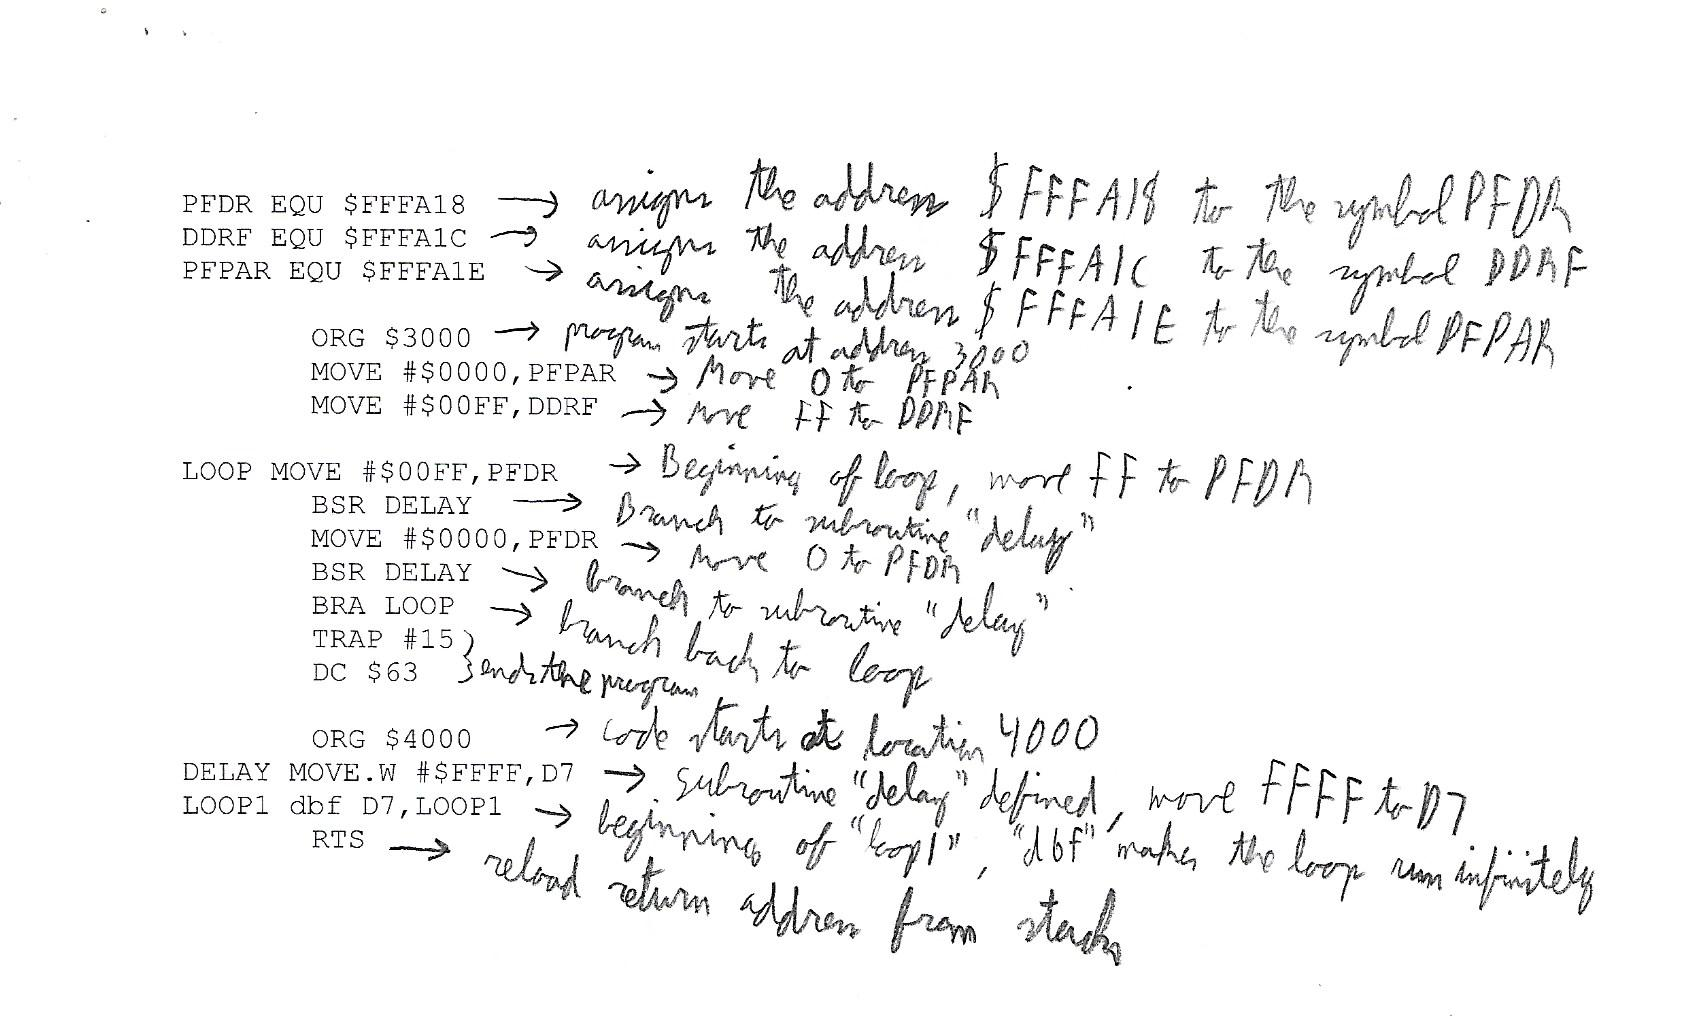 PFDR EQU $FFFA18 → assigns the address $FFFA18 to the symbol PFDR
DDRF EQU $FFFA1C → assigns the address $FFFA1C to the symbol DDRF
PFPAR EQU $FFFA1E → assigns the address $FFFA1E to the symbol PFPAR
ORG $3000 → program starts at address 3000
MOVE #$0000,PFPAR → Move 0 to PFPAR
MOVE #$00FF,DDRF → Move FF to DDRF
LOOP MOVE #$00FF,PFDR → Beginning of loop, move FF to PFDR
BSR DELAY → Branch to subroutine "delay"
MOVE #$0000,PFDR → Move 0 to PFDR
BSR DELAY → branch to subroutine "delay"
BRA LOOP → branch back to loop
TRAP #15
DC $63 } ends the program
ORG $4000 → code starts at location 4000
DELAY MOVE.W #$FFFF,D7 → Subroutine "delay" defined, move FFFF to D7
LOOP1 dbf D7,LOOP1 → beginning of "loop1", "dbf" makes the loop run infinitely
RTS → reload return address from stack